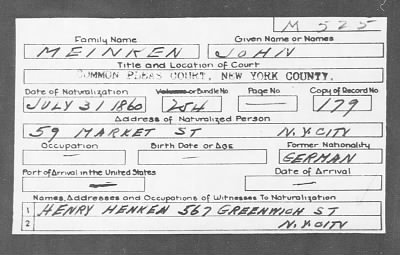 M 525
Family Name Given Name or Names
MEINKEN JOHN
Title and Location of Court
COMMON PLEAS COURT, NEW YORK COUNTY.
Date of Naturalization Volume or Bundle No Page No Copy of Record No
JULY 31 1860 254 — 179
Address of Naturalized Person
59 MARKET ST N.Y. CITY
Occupation Birth Date or Age Former Nationality
— — GERMAN
Port of Arrival in the United States Date of Arrival
— —
Names, Addresses and Occupations of Witnesses To Naturalization
1 HENRY HENKEN 567 GREENWICH ST
2 N.Y. CITY